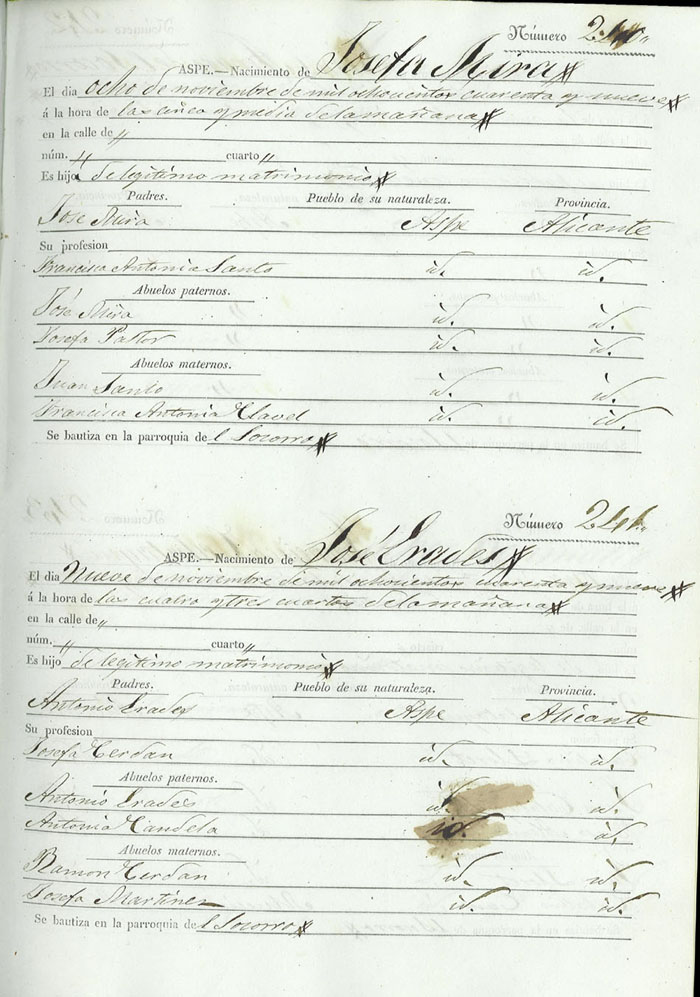 Número 2
ASPE.—Nacimiento de Josefa Mira
El dia ocho de noviembre de mil ochocientos cuarenta y nueve
á la hora de las cinco y media de la mañana
en la calle de „
núm. „ cuarto „
Es hijo de legítimo matrimonio
Padres. Pueblo de su naturaleza. Provincia.
José Mira Aspe Alicante
Su profesion
Francisca Antonia Santo id. id.
Abuelos paternos.
José Mira id. id.
Josefa Pastor id. id.
Abuelos maternos.
Juan Santo id. id.
Francisca Antonia Clavel id. id.
Se bautiza en la parroquia del Socorro
Número 241„
ASPE.—Nacimiento de José Erades
El dia Nueve de noviembre de mil ochocientos cuarenta y nueve
á la hora de las cuatro y tres cuartos de la mañana
en la calle de „
núm. „ cuarto „
Es hijo de legítimo matrimonio
Padres. Pueblo de su naturaleza. Provincia.
Antonio Erades Aspe Alicante
Su profesion
Josefa Cerdan id. id.
Abuelos paternos.
Antonio Erades id. id.
Antonia Candela id. id.
Abuelos maternos.
Ramon Cerdan id. id.
Josefa Martinez id. id.
Se bautiza en la parroquia del Socorro